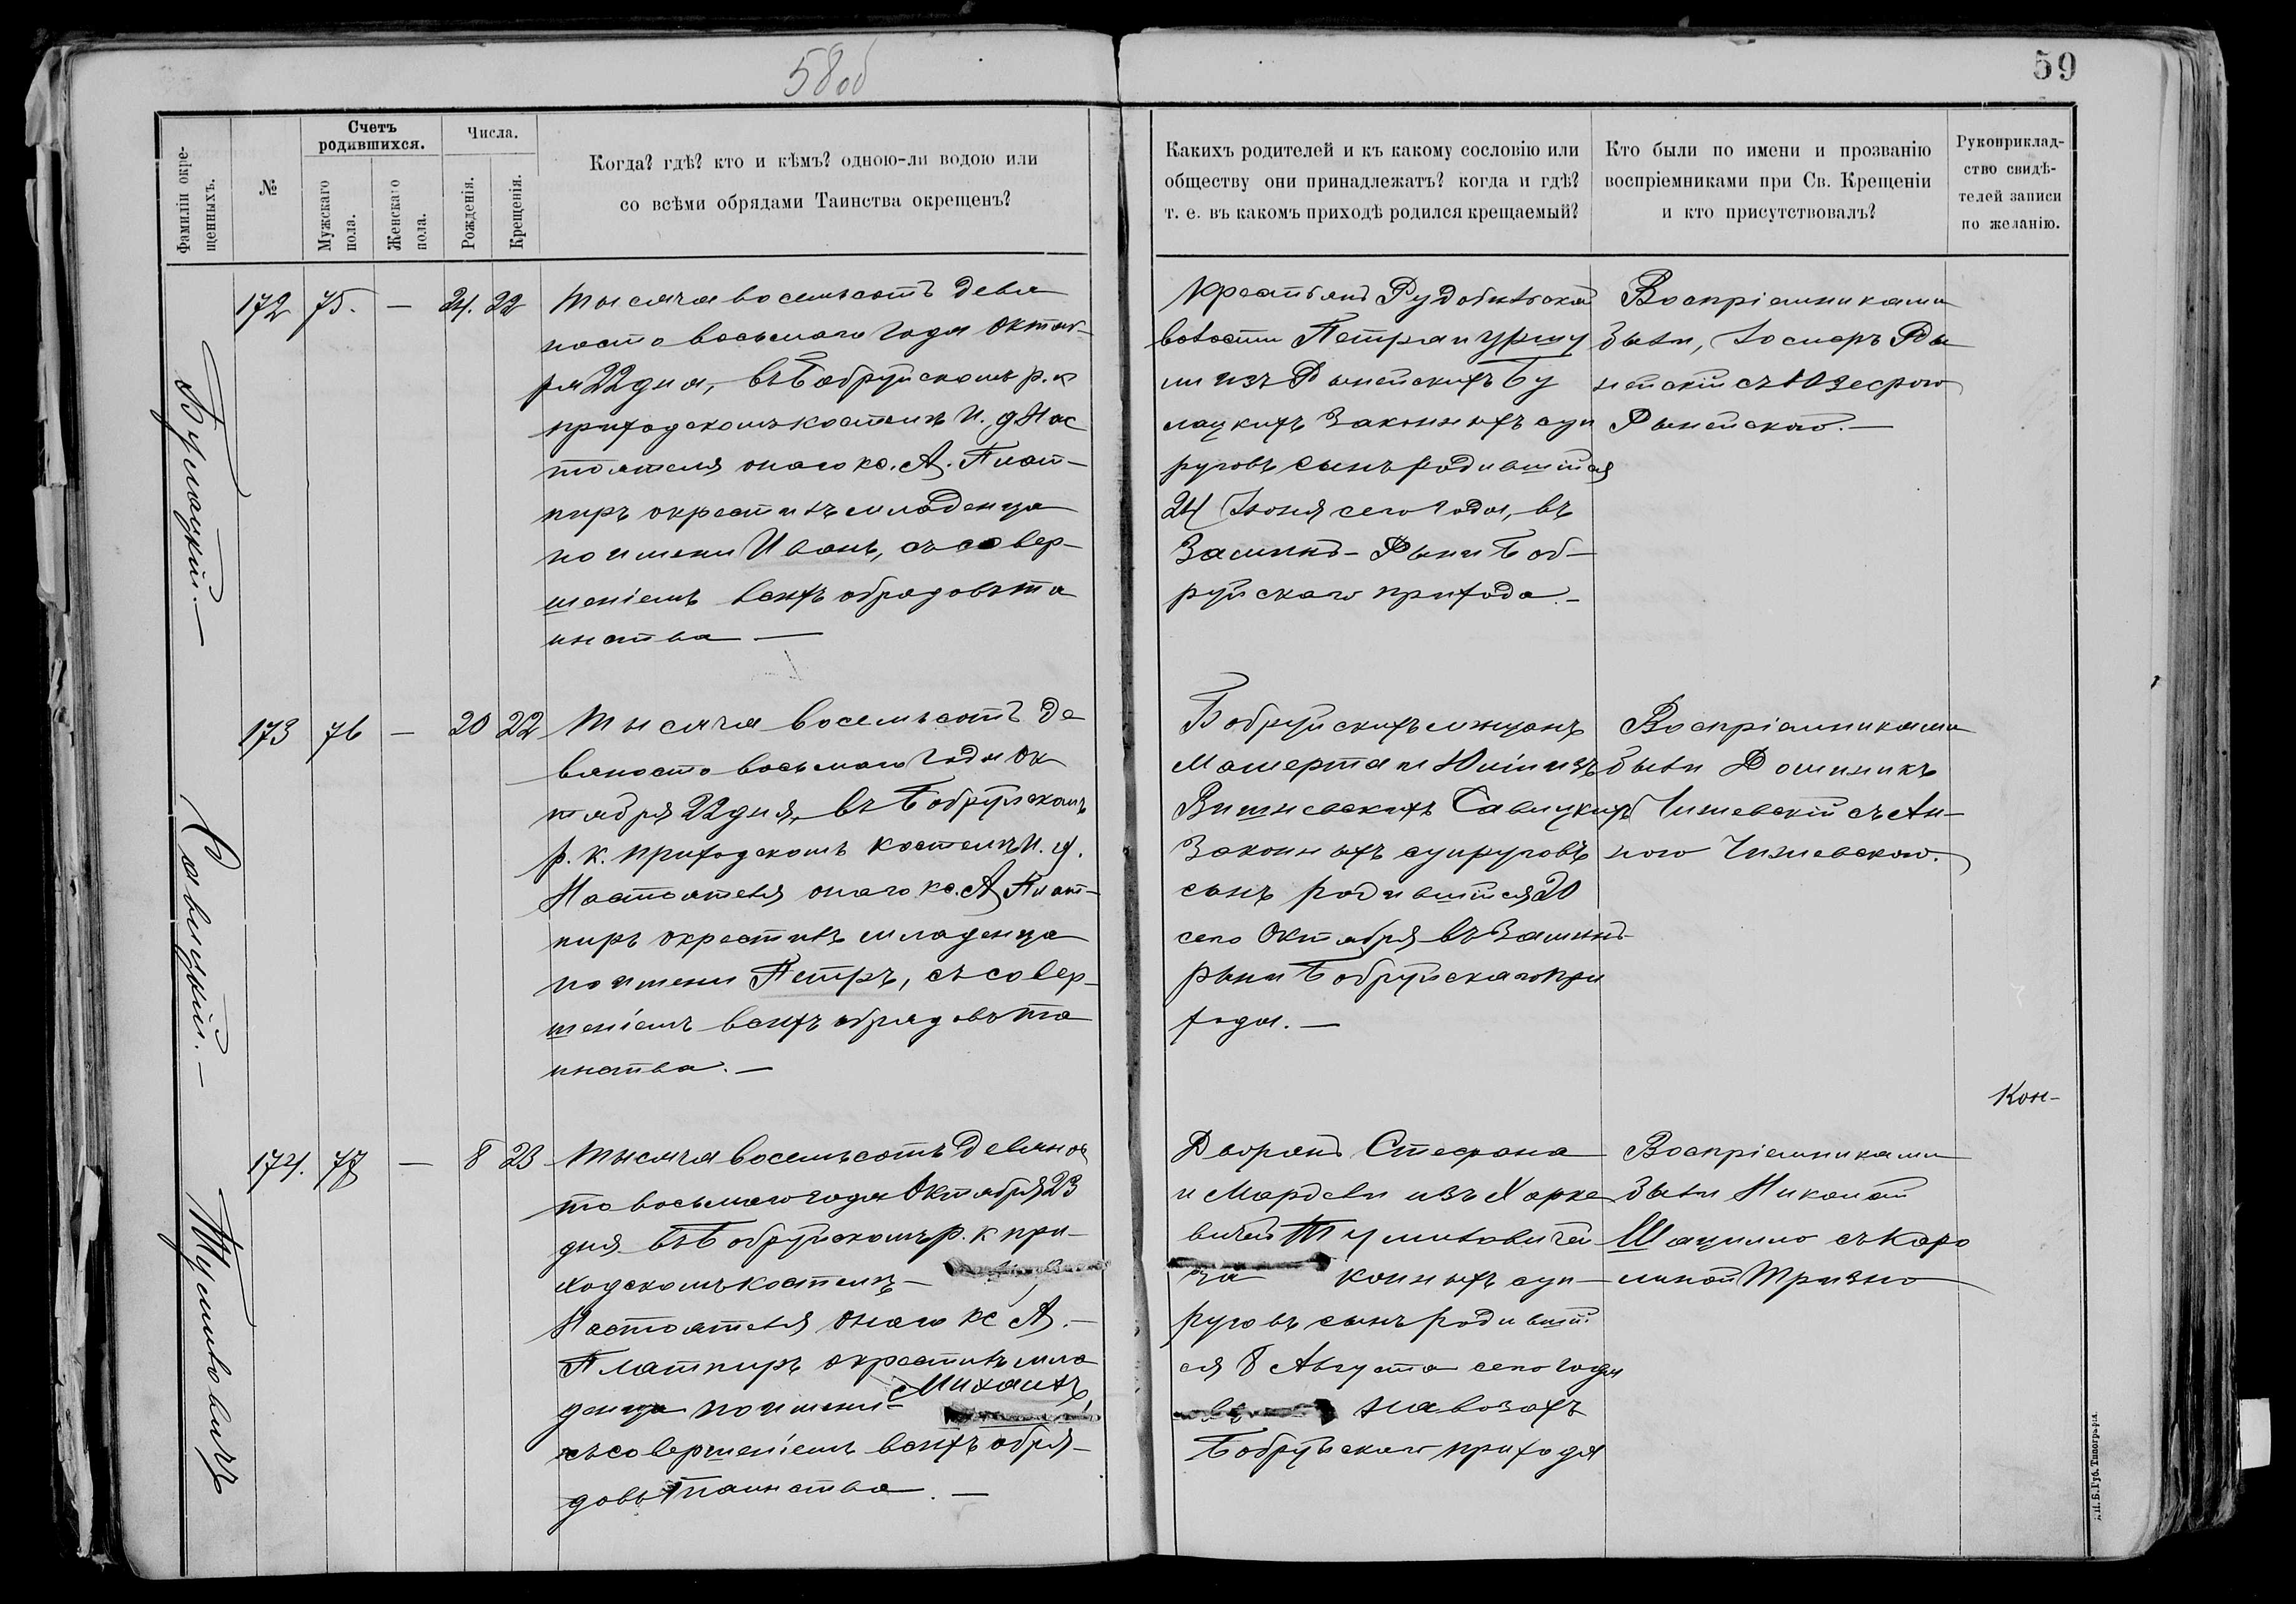 58 об
59
Фамиліи окре-
щенныхъ.
№
Счетъ
родившихся.
Мужскаго
пола.
Женскаго
пола.
Числа.
Рожденія.
Крещенія.
Когда? гдѣ? кто и кѣмъ? одною-ли водою или
со всѣми обрядами Таинства окрещенъ?
Какихъ родителей и къ какому сословію или
обществу они принадлежатъ? когда и гдѣ?
т. е. въ какомъ приходѣ родился крещаемый?
Кто были по имени и прозванію
воспріемниками при Св. Крещеніи
и кто присутствовалъ?
Рукоприклад-
ство свидѣ-
телей записи
по желанію.
Булацкій. —
172 75. — 24. 22
Тысяча восемьсотъ девя
носто восьмого года Октяб-
ря 22 дня, въ Бобруйскомъ р. к
приходскомъ костелѣ И. д Нас
тоятеля онаго кс. А. Плат-
пиръ окрестилъ младенца
по имени Иванъ, съ совер-
шеніемъ всѣхъ обрядовъ та
инства —
Крестьянъ Рудобѣлской
волости Петра и Уршу
ли изъ Рынейскихъ Бу
лацкихъ законныхъ суп
руговъ сынъ родившійся
24 Іюня сего года, въ
Засинѣ-Рыни Боб-
руйскаго прихода. —
Воспріемниками
были, Іосифъ Ры
нейскій съ Юзефою
Рынейскою. —
Савицкій. —
173 76 — 20 22
Тысяча восемьсотъ де
вяносто восьмого года Ок
тября 22 дня, въ Бобруйскомъ
р. к. приходскомъ костелѣ И. д.
Настоятеля онаго кс. А Плат-
пиръ окрестилъ младенца
по имени Петръ, съ совер-
шеніемъ всѣхъ обрядовъ та
инства. —
Бобруйскихъ мѣщанъ
Мамерта и Юліи изъ
Вишневскихъ Савицкихъ
законныхъ супруговъ
сынъ родившійся 20
сего Октября въ Засинѣ-
рыни Бобруйскаго при
хода. —
Воспріемниками
были Доминикъ
Чижевскій съ Ан-
ною Чижевскою.
Кон-
Тумиловичъ
174. 77 — 8 23
Тысяча восемьсотъ девянос
то восьмого года Октября 23
дня въ Бобруйскомъ р. к при-
ходскомъ костелѣ —
Настоятеля онаго кс А. —
Платпиръ окрестилъ мла
денца по имени Михаилъ,
съ совершеніемъ всѣхъ обря-
довъ Таинства. —
Дворянъ Стефана
и Марцели изъ Харке
вичей Тумиловичей
за конныхъ суп-
руговъ сынъ родивші
ся 8 Августа сего года
навозахъ
Бобруйскаго прихода
Воспріемниками
были Николай
Шацилло съ Каро
линой Тризно